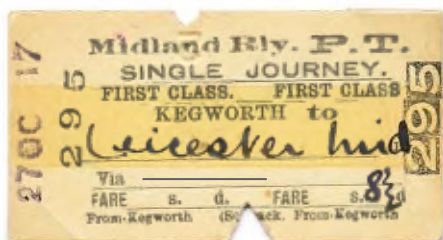 Midland Rly. P.T.
SINGLE JOURNEY.
FIRST CLASS. FIRST CLASS
KEGWORTH to
Leicester Mid
Via
FARE s. d. FARE s. 8½d
From Kegworth (See back. From Kegworth
295
295
27OC 17